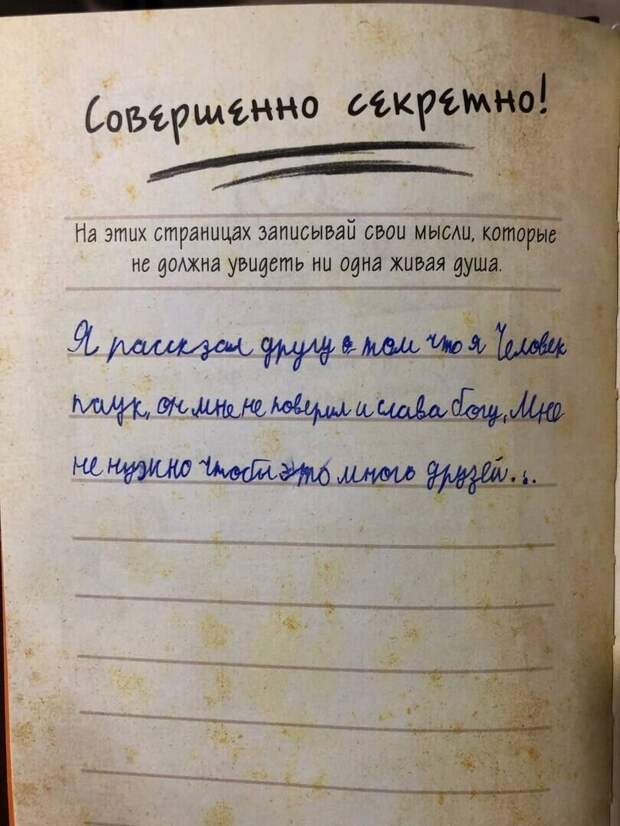 Совершенно секретно!
На этих страницах записывай свои мысли, которые
не должна увидеть ни одна живая душа.
Я рассказал другу о том что я Человек
паук, он мне не поверил и слава богу, Мне
не нужно чтобы это много друзей...